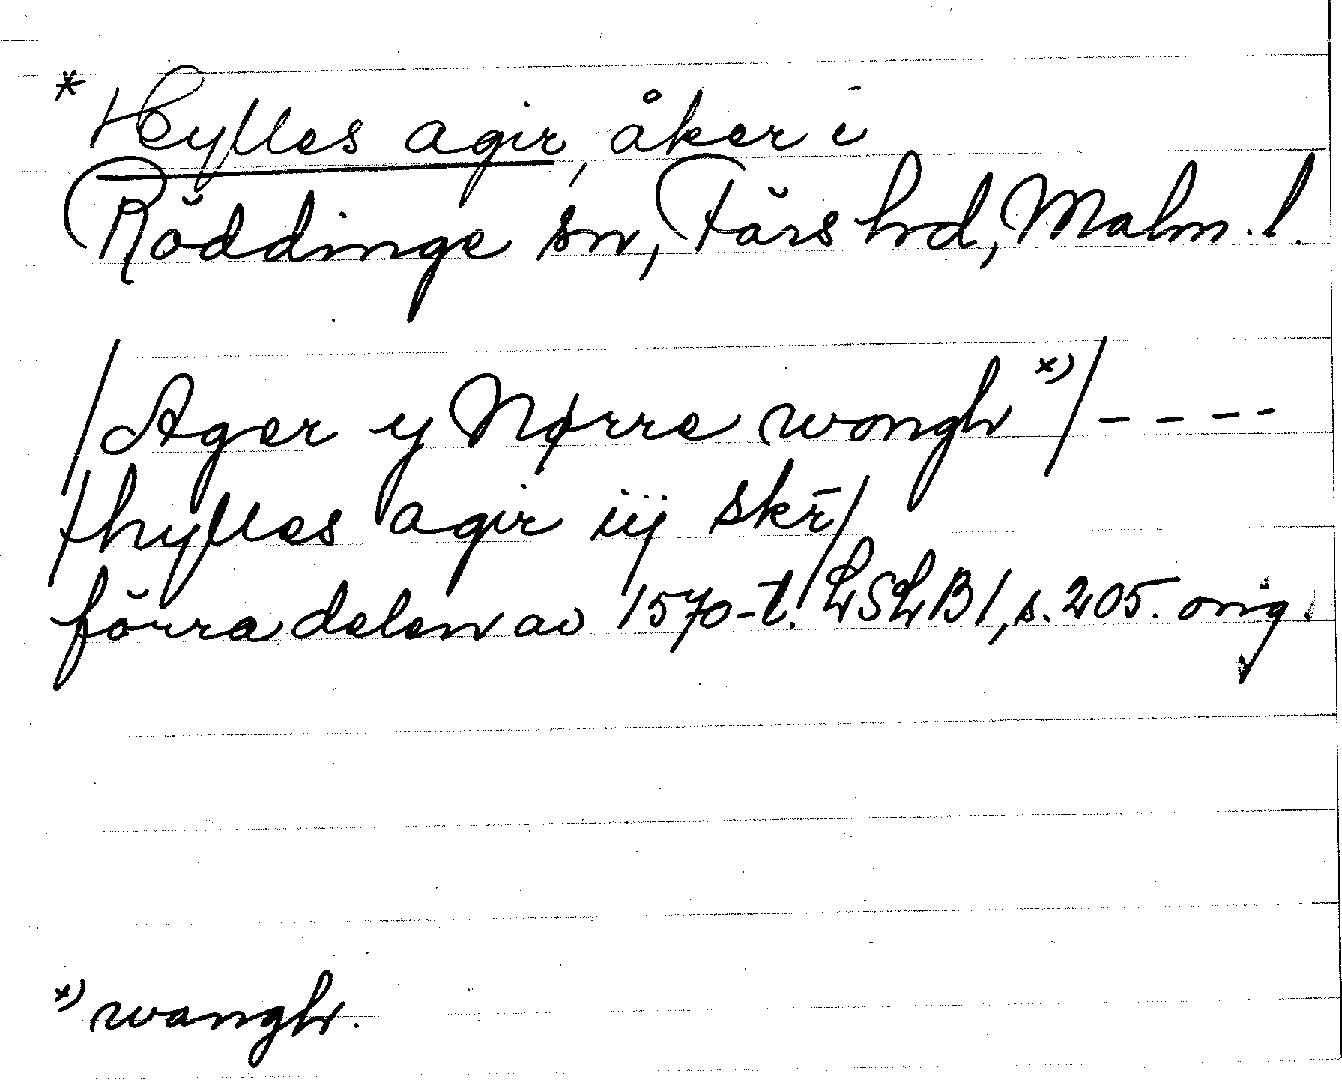 * Hylles agir, åker i
Röddinge sn, Färs hd, Malm. l.
/Ager y Nørre wongh *)/ - - - -
/hylles agir iij skr̄/
förra delen av 1570-t. LSLB 1, s. 205. orig.
*) wangh.